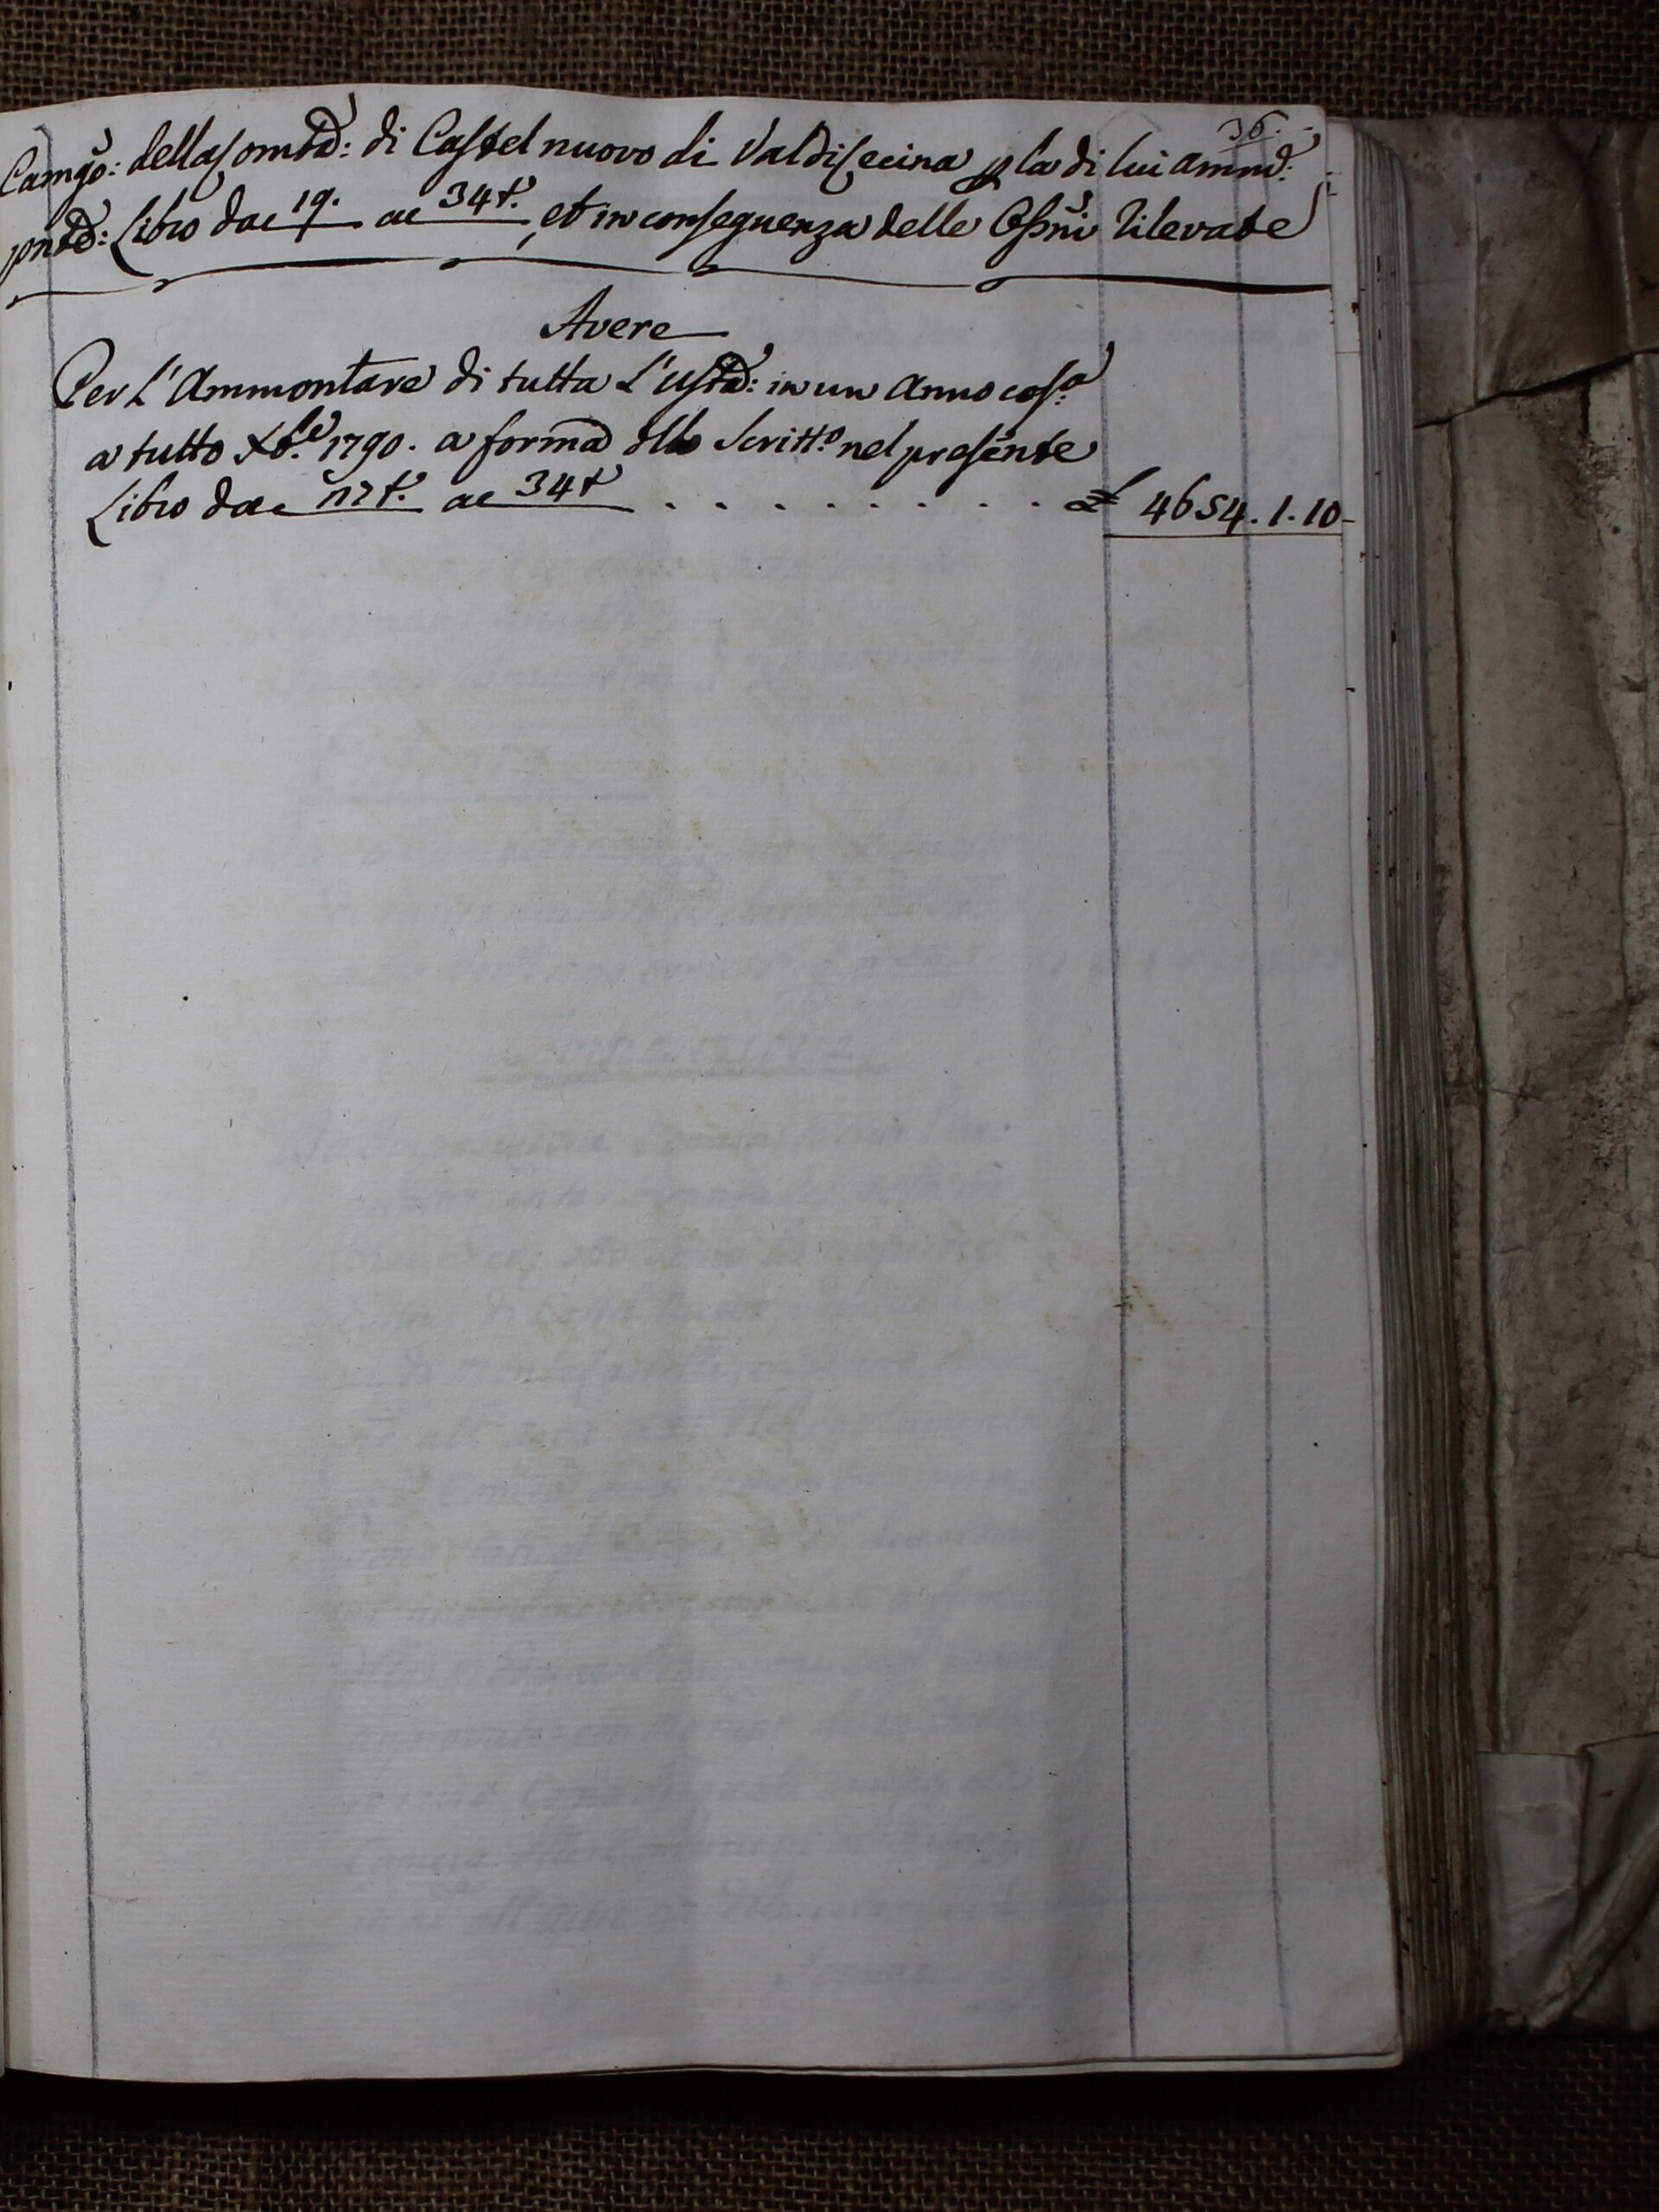 36.
Camgo: della Comtà: di Castelnuovo di Valdicecina p la di lui ammd:
pntd: Libro da c 19. a c 34t., et in conseguenza delle Ossni rilevate
Avere
Per L'Ammontare di tutta L'usta: in un Anno cosa
a tutto Xbre 1790. a forma dello Scritto nel presente
Libro da c 17t. a c 34t . . . . . . . . . £ 4654.1.10-